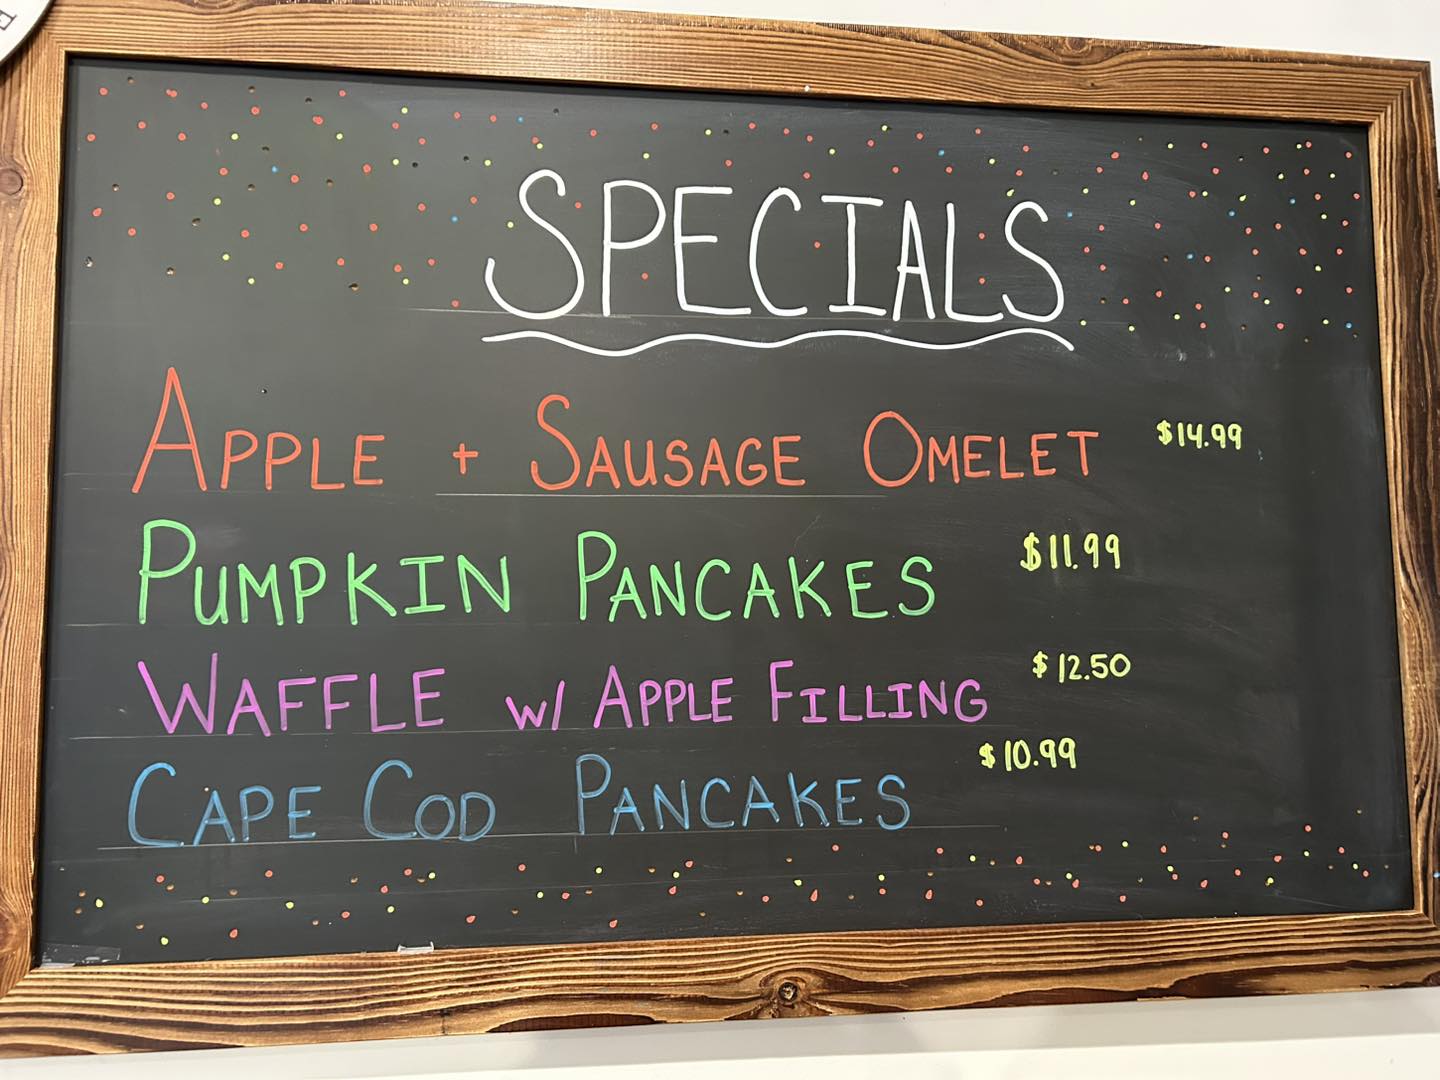 SPECIALS
APPLE + SAUSAGE OMELET $14.99
PUMPKIN PANCAKES $11.99
WAFFLE W/ APPLE FILLING $12.50
CAPE COD PANCAKES $10.99